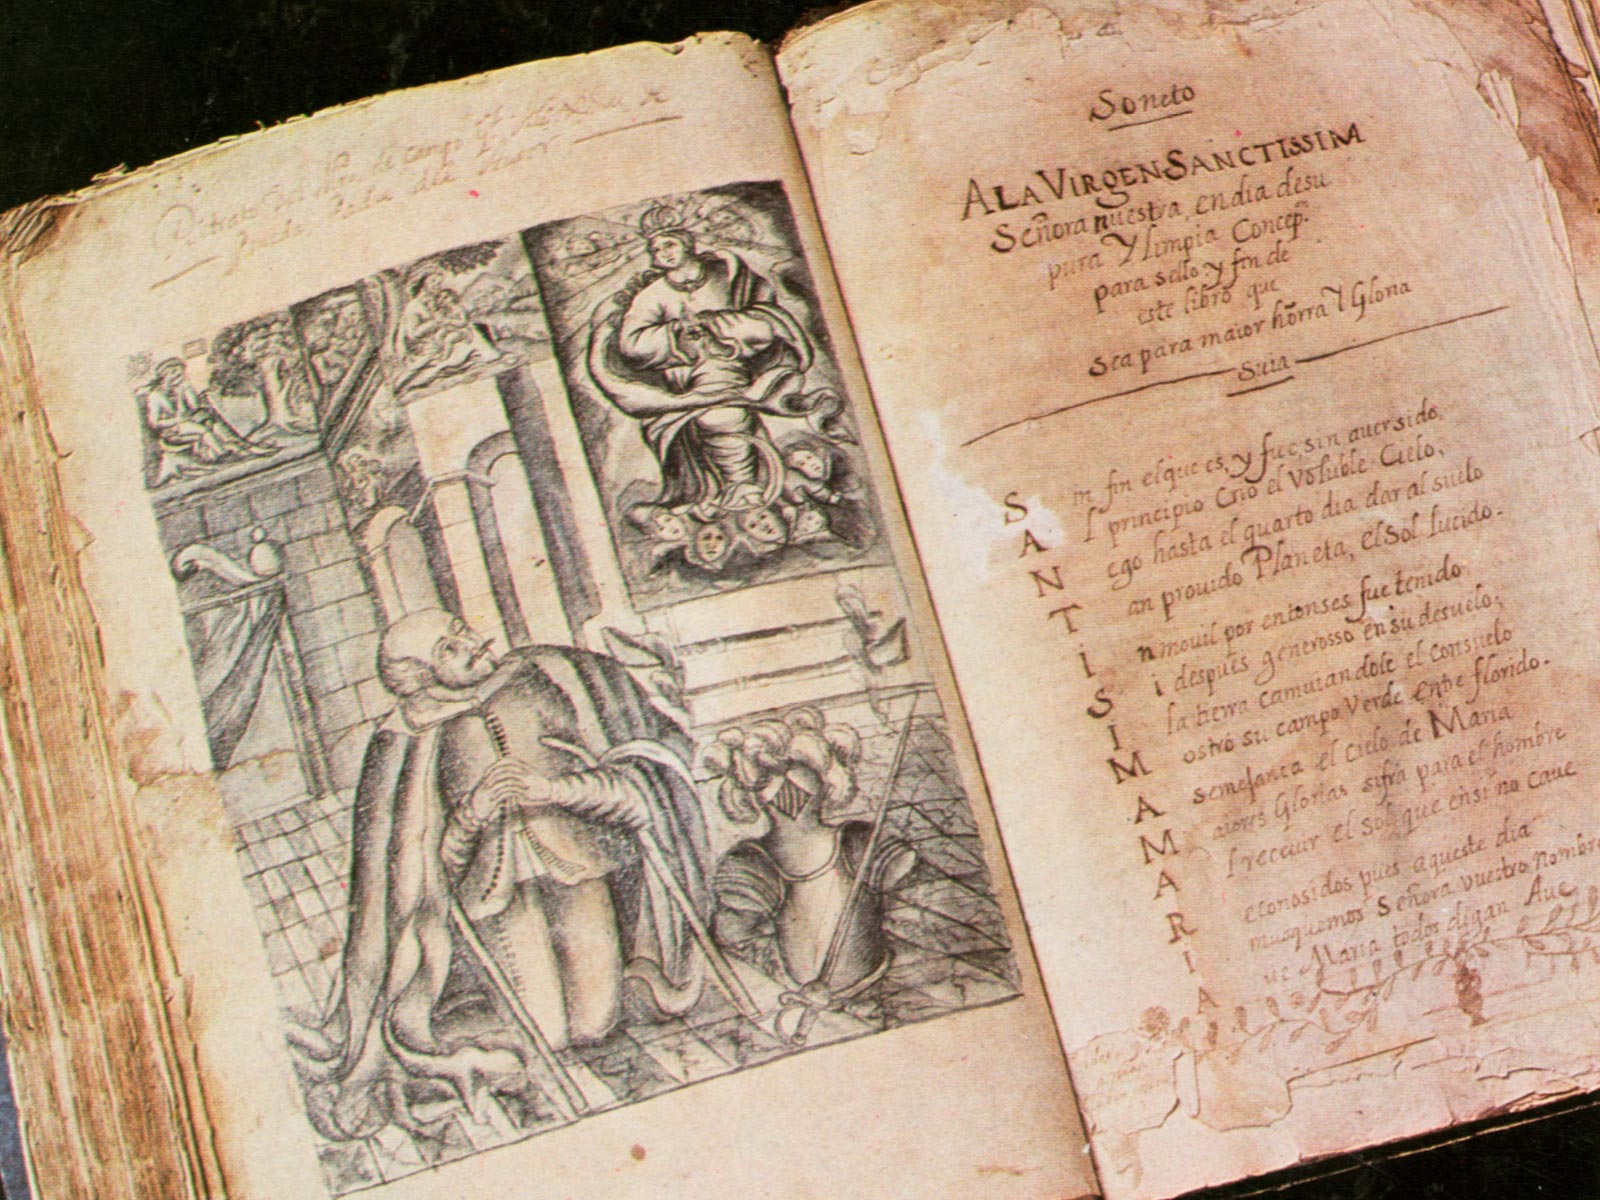 Retrato del Mro. de campo
Padre del Autor
Soneto
A LA VIRGEN SANCTISSIM
Señora nuestra, en dia de su
pura Y limpia Concep.
para sello y fin de
este libro que
sea para maior honrra Y Gloria
Suia
S in fin el que es, y fue, sin auer sido,
A l principio Crió el Voluble Cielo,
N ego hasta el quarto dia dar al suelo
T an prouido Planeta, el Sol lucido.
i nmouil por entonses fue tenido
S i despues generosso en su desuelo;
I la tierra camuiandole el consuelo
M ostró su campo Verde entre florido.
A semejança el cielo de Maria
M aiores Glorias sifra para el hombre
A l receuir el Sol que en si no caue
R econosidos pues aqueste dia
i nuoquemos Señora vuestro Nombre
A ue Maria todos digan Aue